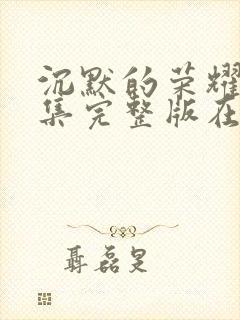 沉默的荣耀
集完整版在
聂磊旻